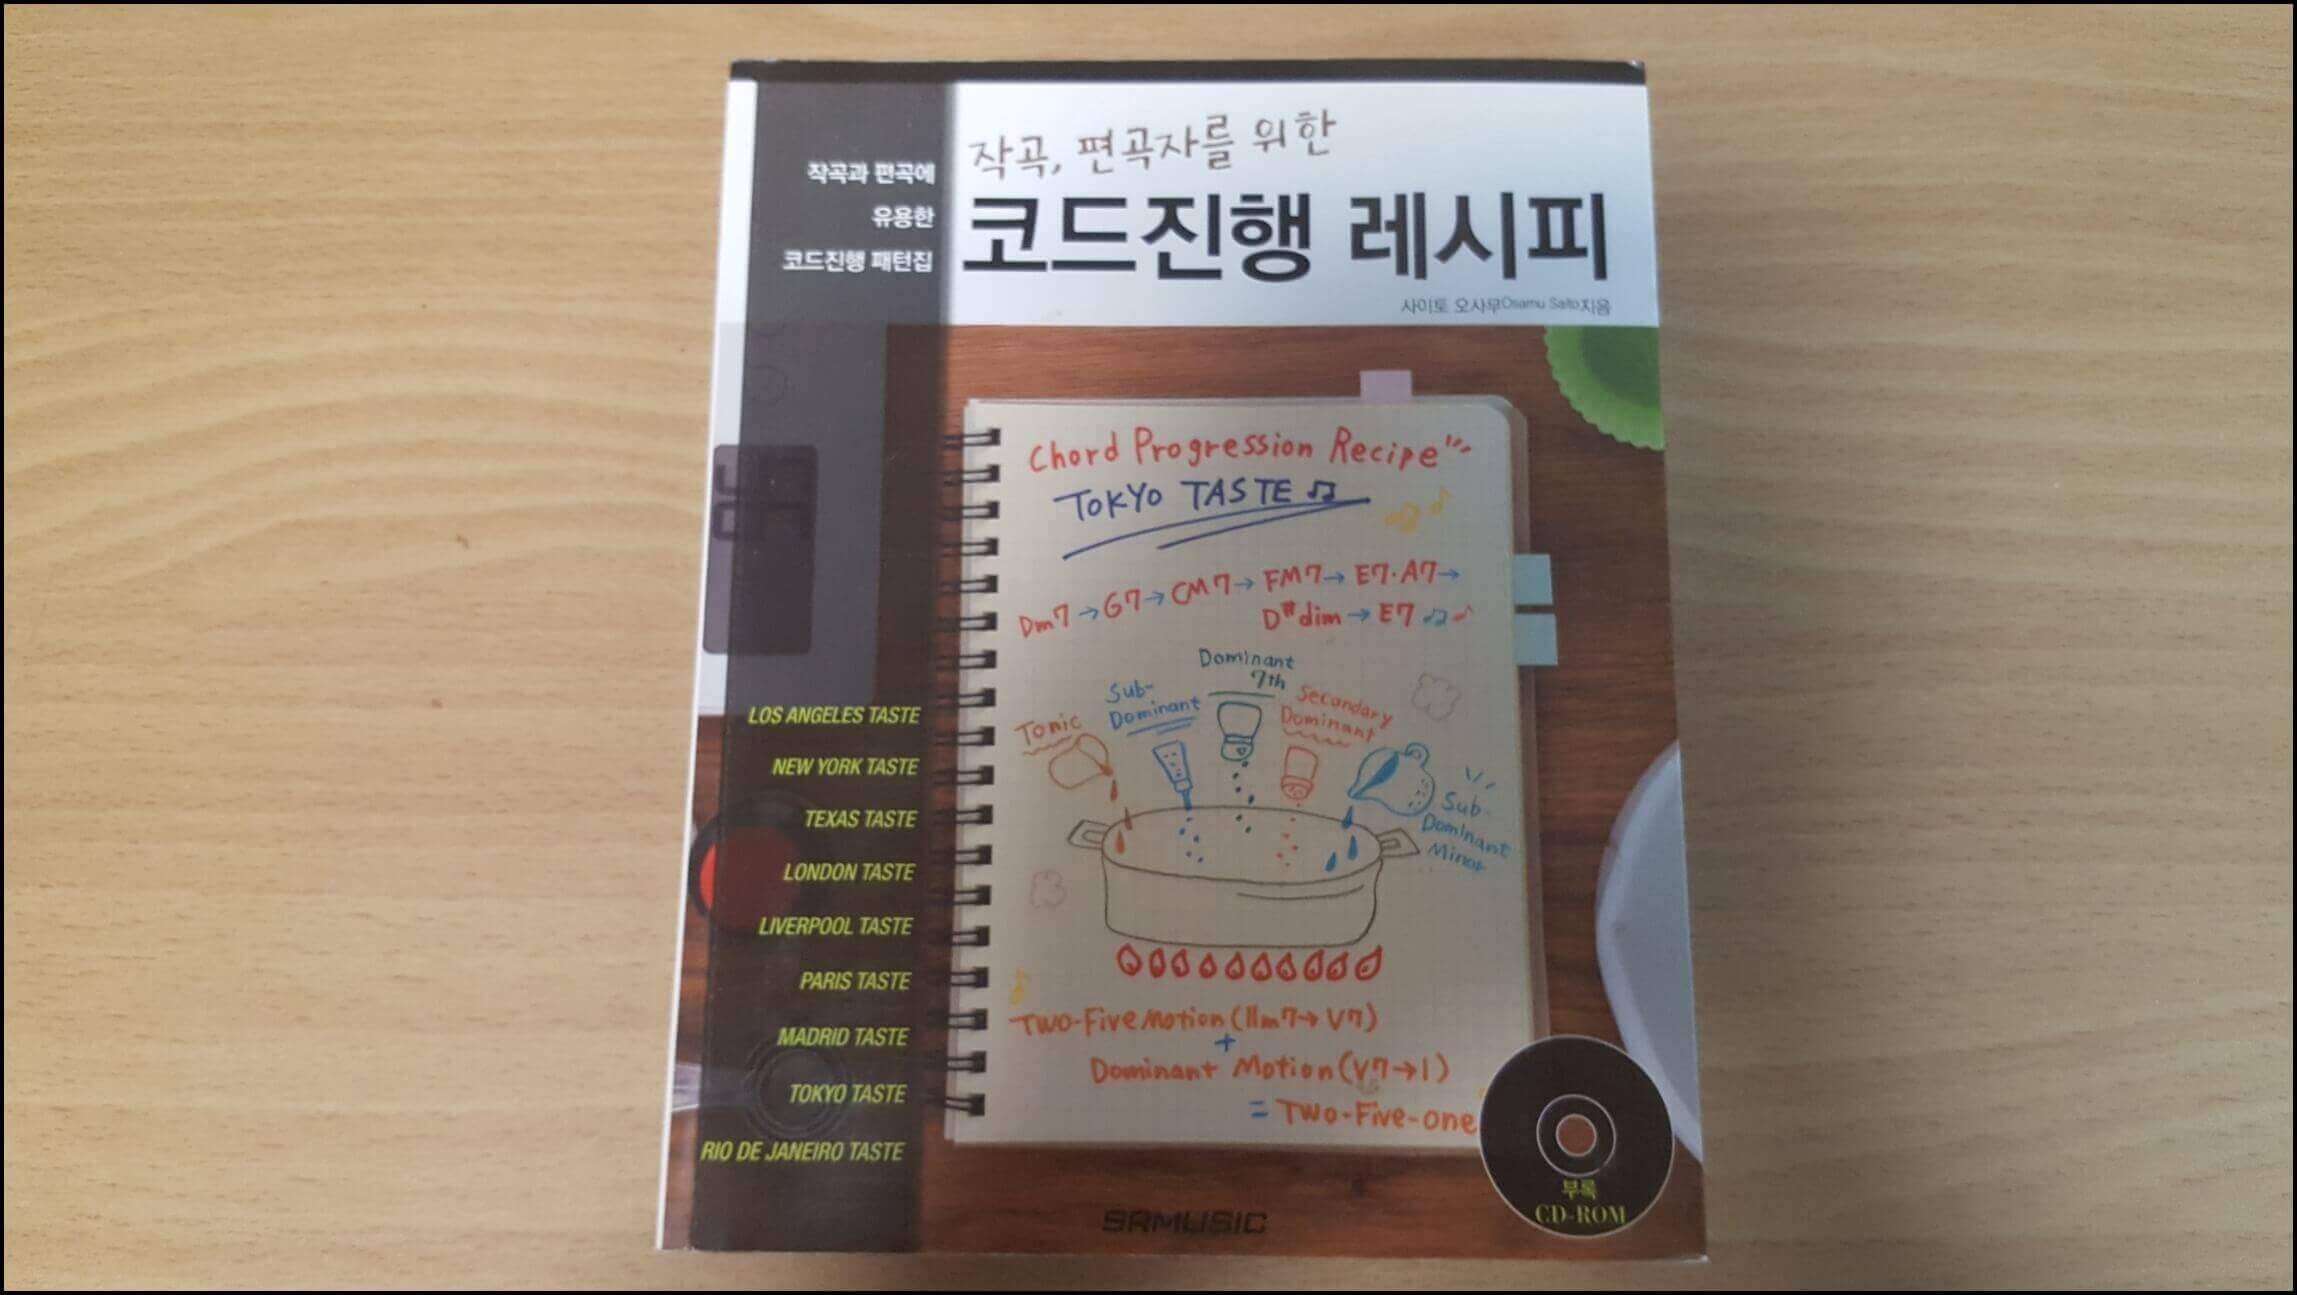 작곡, 편곡자를 위한
코드진행 레시피
사이토 오사무Osamu Saito지음
작곡과 편곡에
유용한
코드진행 패턴집
Chord Progression Recipe
TOKYO TASTE♫
Dm7→G7→CM7→FM7→E7·A7→
D#dim→E7♫♪
Tonic
Sub-
Dominant
Dominant
7th
Secondary
Dominant
Sub-
Dominant
Minor
Two-Five Motion(IIm7→V7)
+
Dominant Motion(V7→I)
= Two-Five-one
LOS ANGELES TASTE
NEW YORK TASTE
TEXAS TASTE
LONDON TASTE
LIVERPOOL TASTE
PARIS TASTE
MADRID TASTE
TOKYO TASTE
RIO DE JANEIRO TASTE
부록
CD-ROM
SRMUSIC